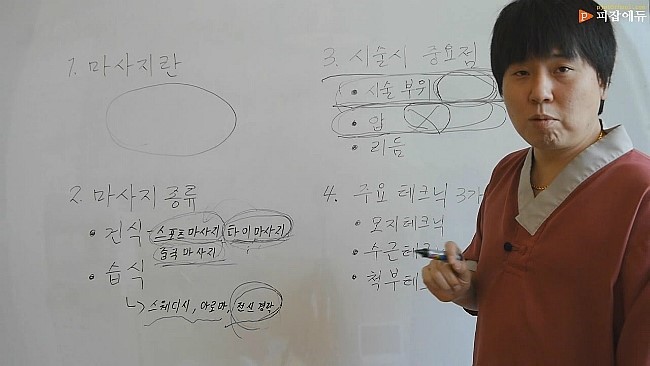 피잡에듀
1. 마사지란
2. 마사지 종류
• 건식 - 스포츠마사지, 타이마사지
중국마사지
• 습식
↳ 스웨디시, 아로마, 전신경락
3. 시술시 중요점
• 시술 부위
• 압
• 리듬
4. 주요 테크닉 3가
• 모지테크닉
• 수근테크
• 척부테